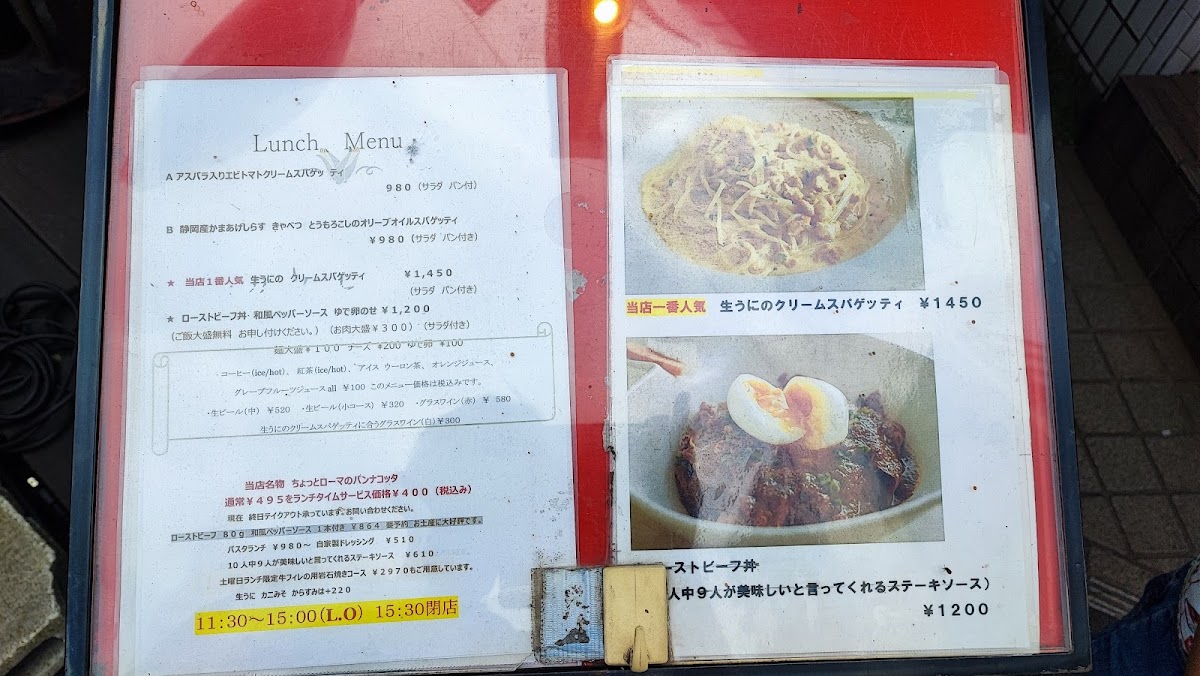 Lunch Menu
A アスパラ入りエビトマトクリームスパゲッティ
980（サラダ パン付）
B 静岡産かまあげしらす きゃべつ とうもろこしのオリーブオイルスパゲッティ
￥980（サラダ パン付き）
★ 当店１番人気 生うにの クリームスパゲッティ ￥1,450
（サラダ パン付き）
★ ローストビーフ丼 和風ペッパーソース ゆで卵のせ ￥1,200
（ご飯大盛無料 お申し付けください。）（お肉大盛￥300）（サラダ付き）
麺大盛￥100 チーズ ￥200 ゆで卵 ￥100
コーヒー(ice/hot)、紅茶(ice/hot)、アイス ウーロン茶、オレンジジュース、
グレープフルーツジュース all ￥100 このメニュー価格は税込みです。
・生ビール(中) ￥520 ・生ビール(小コース) ￥320 ・グラスワイン(赤) ￥ 580
生うにのクリームスパゲティに合うグラスワイン(白)￥300
当店名物 ちょっとローマのパンナコッタ
通常￥495をランチタイムサービス価格￥400（税込み）
現在 終日テイクアウト承っています。お問い合わせください。
ローストビーフ 80g 和風ペッパーソース 1本付き ￥864 要予約 お土産に大好評です。
パスタランチ ￥980～ 自家製ドレッシング ￥510
10人中９人が美味しいと言ってくれるステーキソース ￥610
土曜日ランチ限定牛フィレの用岩石焼きコース ￥2970もご用意しています。
生うに カニみそ からすみは+220
11:30～15:00(L.O) 15:30閉店
当店一番人気 生うにのクリームスパゲッティ ￥1450
ーストビーフ丼
人中９人が美味しいと言ってくれるステーキソース）
￥1200